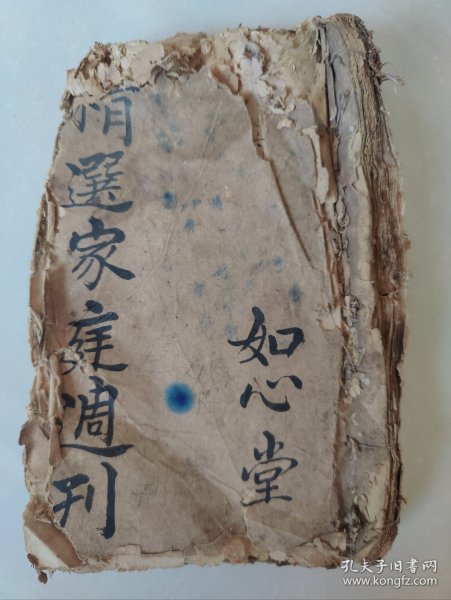 精選家庭週刊
如心堂
孔夫子旧书网
www.kongfz.com